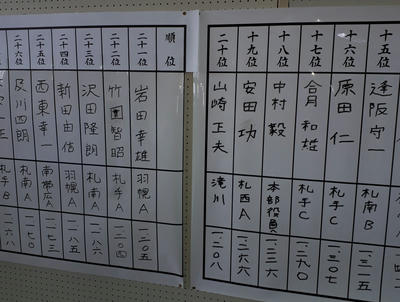 十五位 逢阪 守一 札南B 一、三一五
十六位 原田 仁 札手C 一、三〇七
十七位 合月 和雄 札手C 一、二九〇
十八位 中村 毅 本部役員
十九位 安田 功 札西A 一、二六六
二十位 山崎 正夫 滝川 一、二〇八
順位
二十一位 岩田 幸雄 羽幌A 一二〇五
二十二位 竹 皆昭 札手A 一二〇四
二十三位 沢田 隆朗 札南A 一一八六
二十四位 新田 由 羽幌A 一一八五
二十五位 西東 幸一 南帯広A 一一七三
二十六位 及川 四朗 札南A 一一七〇
札手B 一一六八